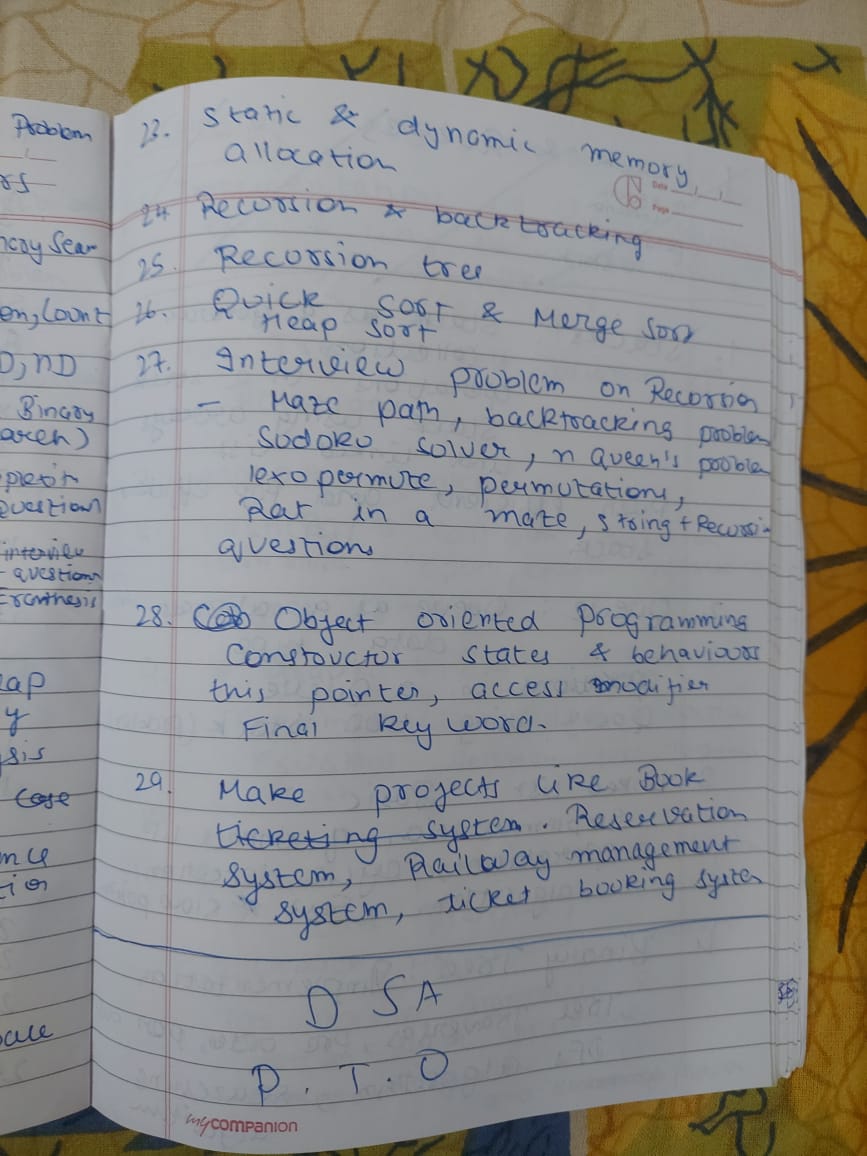 Problem
rs
ncoy Sear
en, Count
D, nD
Binary
questions
interview
question
ap
y
sis
Case
nce
tion
23. Static & dynamic memory
allocation
Date
Page
24 Recorsion & backtracking
25. Recorsion tree
26. Quick sort & Merge sort
Heap sort
27. Interview problem on Recorsion
- Maze path, backtracking problem
Sudoko solver, n queen's problem
lexo permute, permutations,
Rat in a maze, string + Recorsi
questions
28. Object oriented Programming
Constructor states & behaviours
this pointer, access modifier
Final keyword.
29. Make projects like Book
ticketing system. Reservation
system, Railway management
system, ticket booking system
D S A
P. T. O
mycompanion